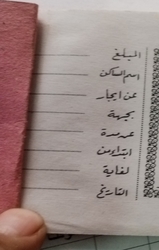 المبلغ
اسم الساكن
عن ايجار
بجهة
عن مدة
ابتداء من
لغاية
التاريخ